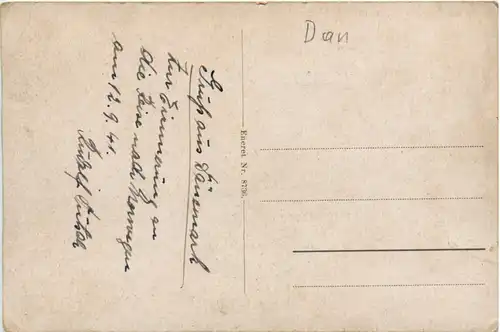 Dan
Gruß aus Dänemark
zur Erinnerung an
die Reise nach Norwegen
am 12.9.41.
Eneret. Nr. 8736.